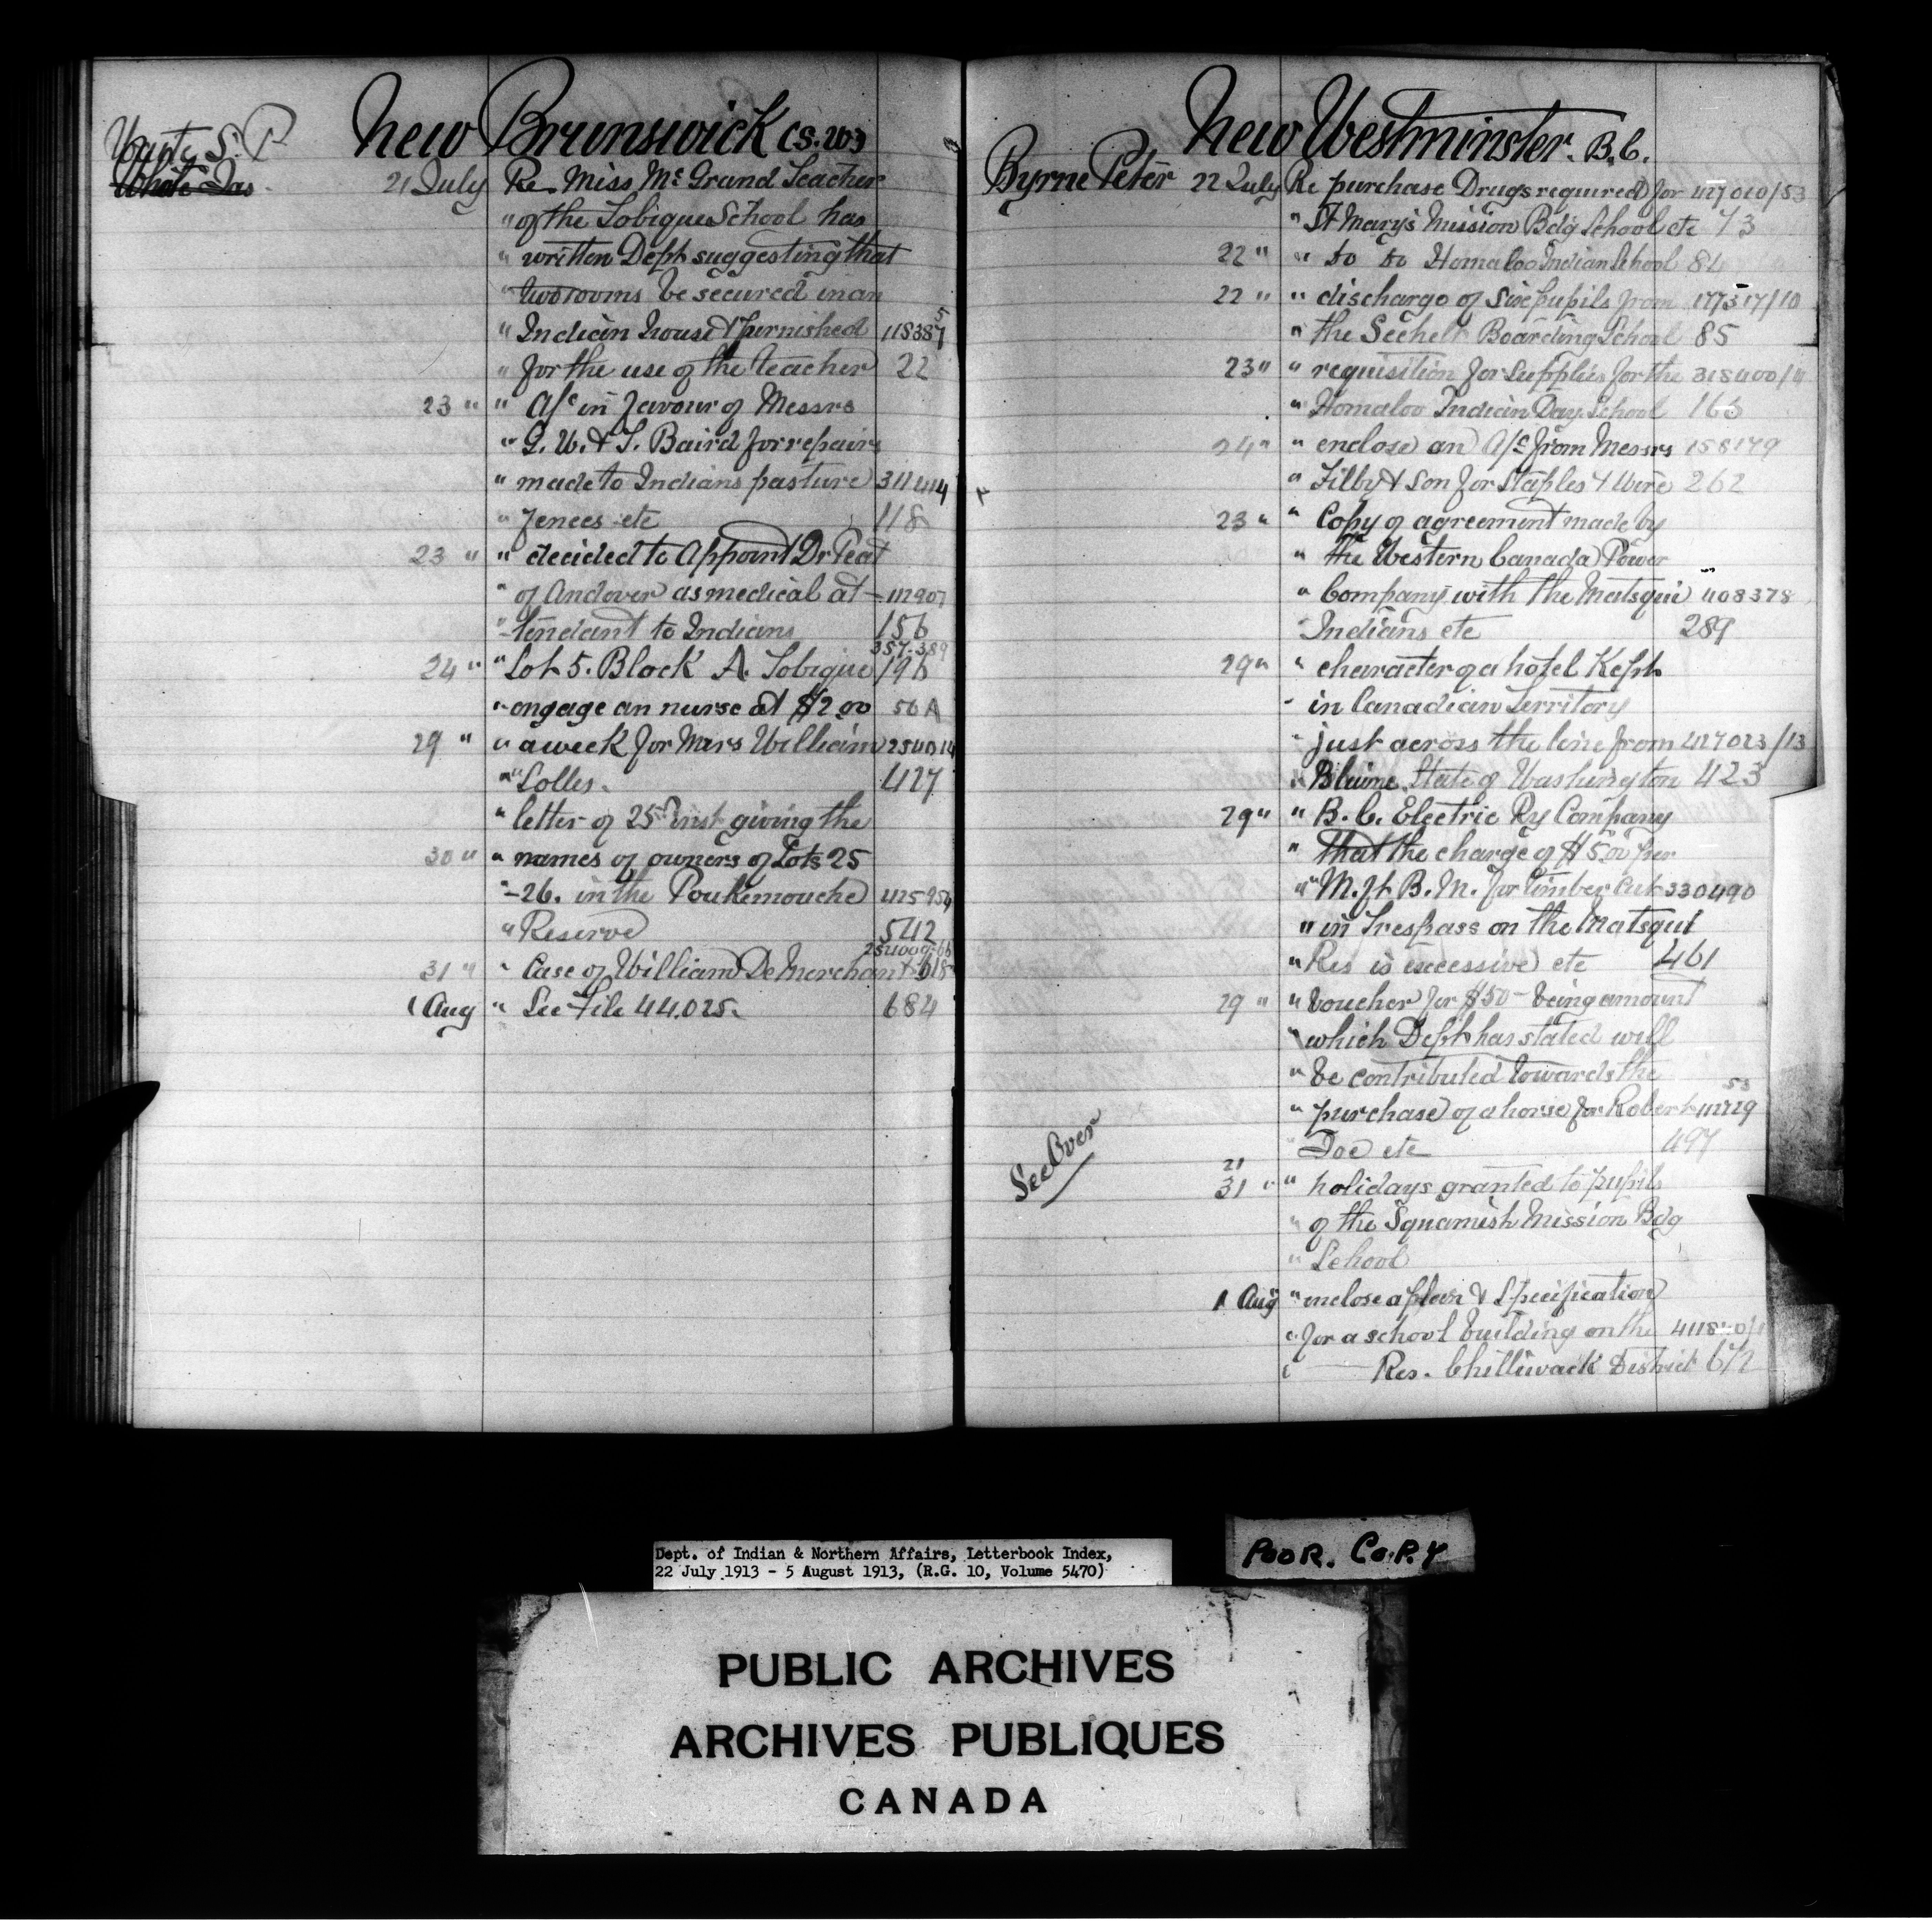 New Brunswick CS. W3
S. P
White Jas.
21 July Re Miss McGrand Teacher
" of the Tobique School has
" written Dept suggesting that
" two rooms be secured in an
" Indian house & furnished 118387 5
" for the use of the teacher 22
23 " " A/c in favour of Messrs
" G. W. & T. Baird for repairs
" made to Indians pasture 311414
" fences etc 118
23 " " decided to appoint Dr Peat
" of Andover as medical at- 112907
"-tendant to Indians 156
357-389
24 " " Lot 5. Block A. Tobique 196
" engage an nurse at $2.00 50 A
29 " " a week for Mrs William 254014
" " Lolles. 427
" letter of 25th inst giving the
30 " " names of owners of Lots 25
"-26. in the Poukemouche 425954
" Reserve 542
254009-66
31 " " Case of William DeMerchant 618
1 Aug " See File 44.025. 684
New Westminster. B.C.
Byrne Peter 22 July Re purchase Drugs required for 427010/53
" St Mary's Mission Bdg School etc 73
22 " " do do Homalco Indian School 84
22 " " discharge of Six pupils from 177317/10
" the Sechelt Boarding School 85
23 " " requisition for supplies for the 318400/4
" Homalco Indian Day School 166
24 " " enclose an A/c from Messrs 158179
" Tilby & Son for Staples & Wire 262
23 " " Copy of agreement made by
" the Western Canada Power
" Company with the Matsqui 408378
Indians etc 289
29 " " character of a hotel Kept
" in Canadian Territory
" just across the line from 427023/13
" Blaine State of Washington 423
29 " " B.C. Electric Ry Company
" that the charge of $5.00 per
" " M. ft B. M. for timber cut 330490
" in Trespass on the Matsqui
" Res is excessive etc 461
29 " " Voucher for $50- being amount
" which Dept has stated will
" be contributed towards the
53
" purchase of a horse for Robert 112729
" Doe etc 497
See Over
21
31 " " holidays granted to pupils
" of the Squamish Mission Bdg
" School
1 Aug " enclose a plan & Specification
" for a school building on the
" Res. Chilliwack District 672
POOR. COPY
Dept. of Indian & Northern Affairs, Letterbook Index,
22 July 1913 - 5 August 1913, (R.G. 10, Volume 5470)
PUBLIC ARCHIVES
ARCHIVES PUBLIQUES
CANADA